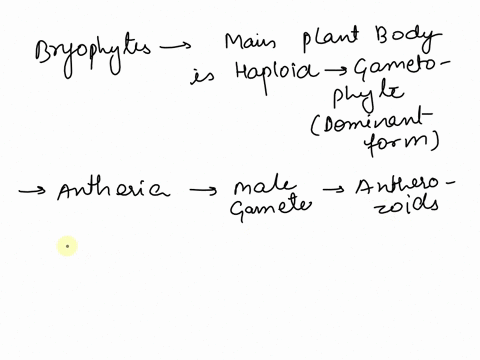 Bryophytes → Main Plant Body
is Haploid → Gameto-
phyte
(Dominant
form)
→ Antheria → male → Anthero-
Gamete zoids